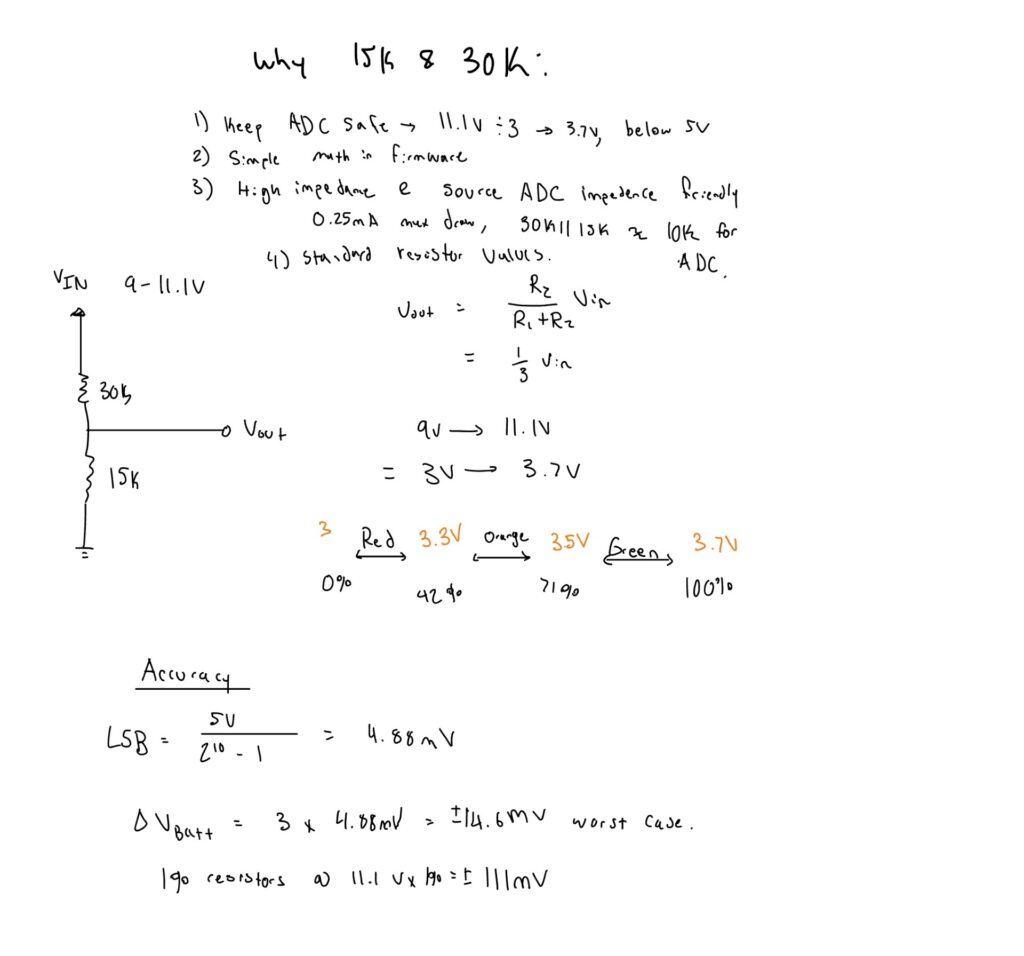 Why 15K & 30K:
1) Keep ADC safe → 11.1V ÷3 → 3.7V, below 5V
2) Simple math in firmware
3) High impedance e source ADC impedence friendly
0.25mA max draw, 30K||15K ≈ 10K for ADC.
4) Standard resistor values.
VIN 9-11.1V
Vout = R2/(R1+R2) Vin
= 1/3 Vin
30K
Vout
15K
9V → 11.1V
= 3V → 3.7V
3 Red 3.3V Orange 3.5V Green 3.7V
0% 42% 71% 100%
Accuracy
LSB = 5V/(2^10 - 1) = 4.88mV
ΔVBatt = 3 x 4.88mV = ±14.6mV worst case.
1% resistors @ 11.1 V x 1% = ± 111mV